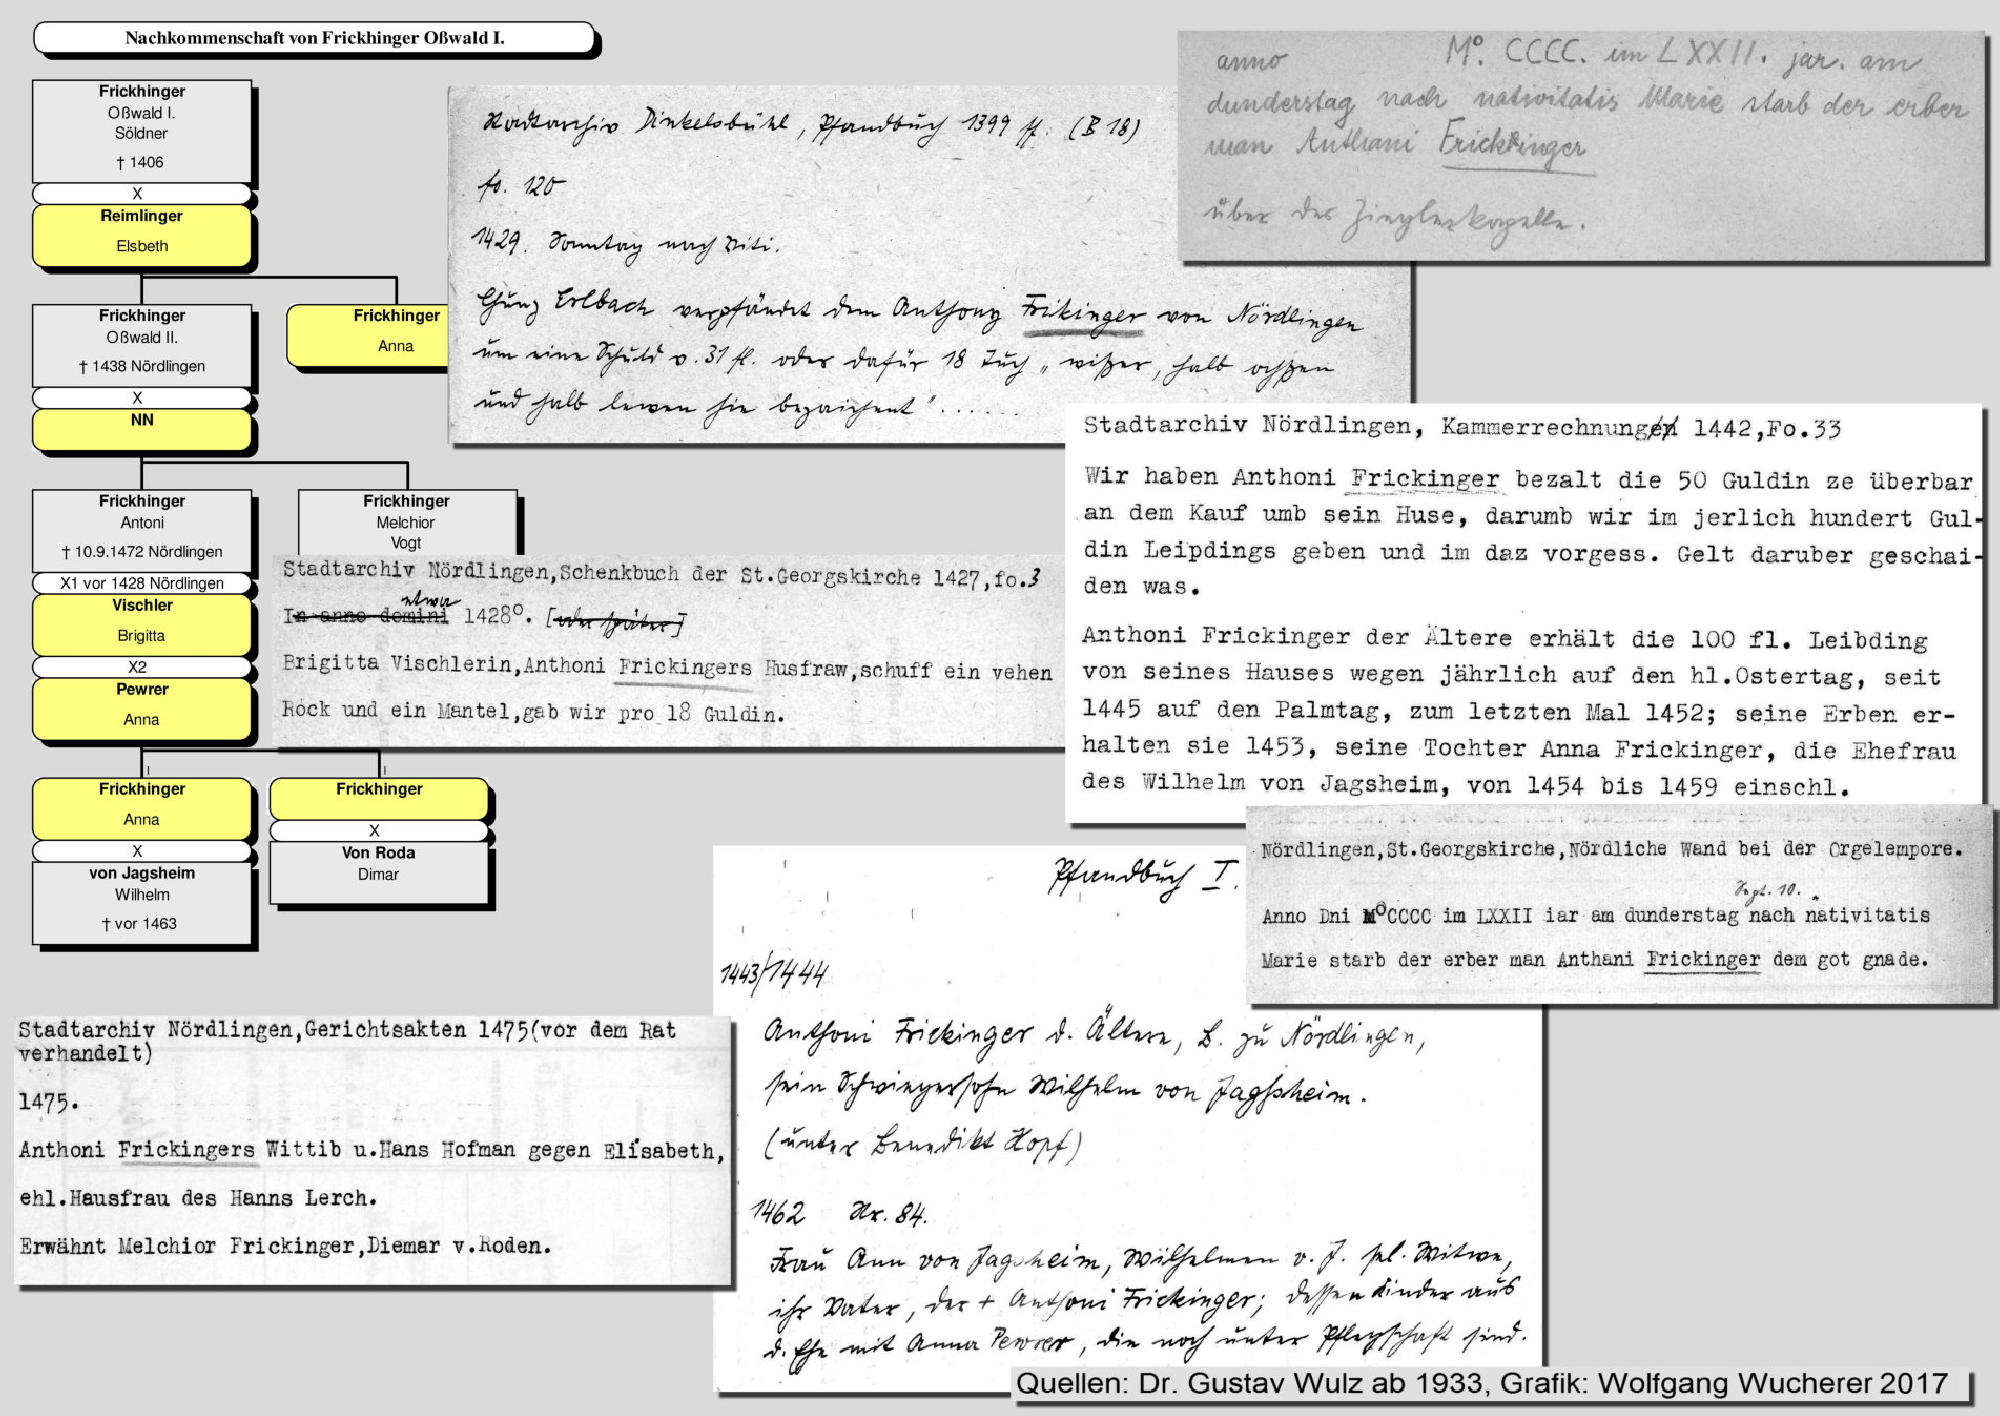 Nachkommenschaft von Frickhinger Oßwald I.
Frickhinger
Oßwald I.
Söldner
† 1406
X
Reimlinger
Elsbeth
Frickhinger
Oßwald II.
† 1438 Nördlingen
X
NN
Frickhinger
Anna
Frickhinger
Antoni
† 10.9.1472 Nördlingen
X1 vor 1428 Nördlingen
Vischler
Brigitta
X2
Pewrer
Anna
Frickhinger
Melchior
Vogt
Frickhinger
Anna
X
von Jagsheim
Wilhelm
† vor 1463
Frickhinger
X
Von Roda
Dimar
Stadtarchiv Dinkelsbühl, Pfandbuch 1399 ff. (B 18)
fo. 120
1429. Sonntag nach Viti.
Chunz Erlbach verpfändet dem Anthony Frikinger von Nördlingen
um eine Schuld v. 31 fl. oder dafür 18 Tuch „wißer, halb ochßen
und halb lewen sie bezaichent" ......
anno Mº. CCCC. im LXXII. jar. am
dunderstag nach nativitatis Marie starb der erber
man Anthani Frickinger
über der Zieglerkapelle.
Stadtarchiv Nördlingen, Kammerrechnungen 1442,Fo.33
Wir haben Anthoni Frickinger bezalt die 50 Guldin ze überbar
an dem Kauf umb sein Huse, darumb wir im jerlich hundert Gul-
din Leipdings geben und im daz vorgess. Gelt daruber geschai-
den was.
Anthoni Frickinger der Ältere erhält die 100 fl. Leibding
von seines Hauses wegen jährlich auf den hl.Ostertag, seit
1445 auf den Palmtag, zum letzten Mal 1452; seine Erben er-
halten sie 1453, seine Tochter Anna Frickinger, die Ehefrau
des Wilhelm von Jagsheim, von 1454 bis 1459 einschl.
Stadtarchiv Nördlingen,Schenkbuch der St.Georgskirche 1427,fo.3
etwa
In anno domini 1428º. [oder später]
Brigitta Vischlerin,Anthoni Frickingers Husfraw,schuff ein vehen
Rock und ein Mantel,gab wir pro 18 Guldin.
Nördlingen,St.Georgskirche,Nördliche Wand bei der Orgelempore.
Sept. 10.
Anno Dni MºCCCC im LXXII iar am dunderstag nach nativitatis
Marie starb der erber man Anthani Frickinger dem got gnade.
Pfandbuch I.
1443/1444
Anthoni Frickinger d. Ältere, B. zu Nördlingen,
sein Schwiegersohn Wilhelm von Jagsheim.
(unter Benedikt Hopf)
1462 Nr. 84.
Frau Ann von Jagsheim, Wilhelmen v. J. sel. Witwe,
ihr Vater, der + Anthoni Frickinger; dessen Kinder aus
d. Ehe mit Anna Pewrer, die noch unter Pflegschaft sind.
Stadtarchiv Nördlingen,Gerichtsakten 1475(vor dem Rat
verhandelt)
1475.
Anthoni Frickingers Wittib u.Hans Hofman gegen Elisabeth,
ehl.Hausfrau des Hanns Lerch.
Erwähnt Melchior Frickinger,Diemar v.Roden.
Quellen: Dr. Gustav Wulz ab 1933, Grafik: Wolfgang Wucherer 2017